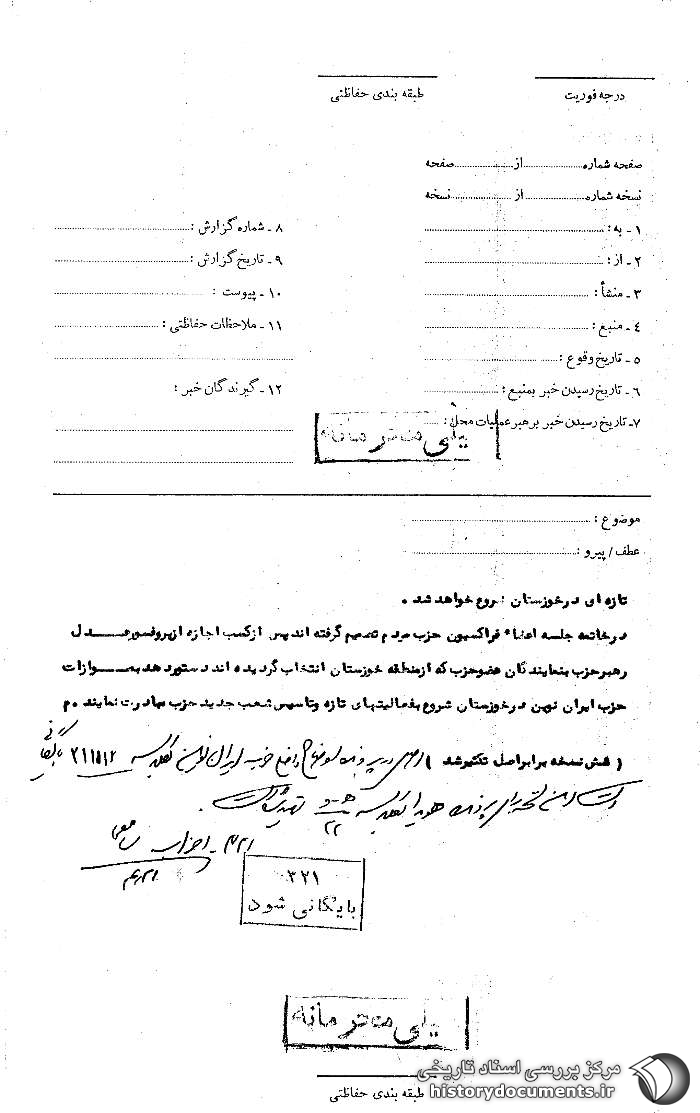 درجه فوریت
طبقه بندی حفاظتی
صفحه شماره از صفحه
نسخه شماره از نسخه
۱ - به :
۲ - از :
۳ - منشأ :
۴ - منبع :
۵ - تاریخ وقوع :
۶ - تاریخ رسیدن خبر بمنبع :
۷ـ تاریخ رسیدن خبر برهبر عملیات محل :
۸ - شماره گزارش :
۹ - تاریخ گزارش :
۱۰ - پیوست :
۱۱ - ملاحظات حفاظتی :
۱۲ - گیرندگان خبر :
خیلی محرمانه
موضوع :
عطف / پیرو :
تازه ای در خوزستان شروع خواهد شد .
در خاتمه جلسه اعضاء فراکسیون حزب مردم تصمیم گرفته اند پس از کسب اجازه از پروفسور عدل
رهبر حزب بنمایندگان عضو حزب که از منطقه خوزستان انتخاب گردیده اند دستور دهد بموازات
حزب ایران نوین در خوزستان شروع بفعالیتهای تازه و تاسیس شعب جدید حزب مبادرت نمایند . م
( شش نسخه برابر اصل تکثیر شد ) اصل در پرونده حزب ایران نوین بکلاسه ۲۱۱۵۱۲
پرونده هویدا بکلاسه
احزاب
۳۲۱
بایگانی شود
خیلی محرمانه
مرکز بررسی اسناد تاریخی
historydocuments.ir
طبقه بندی حفاظتی